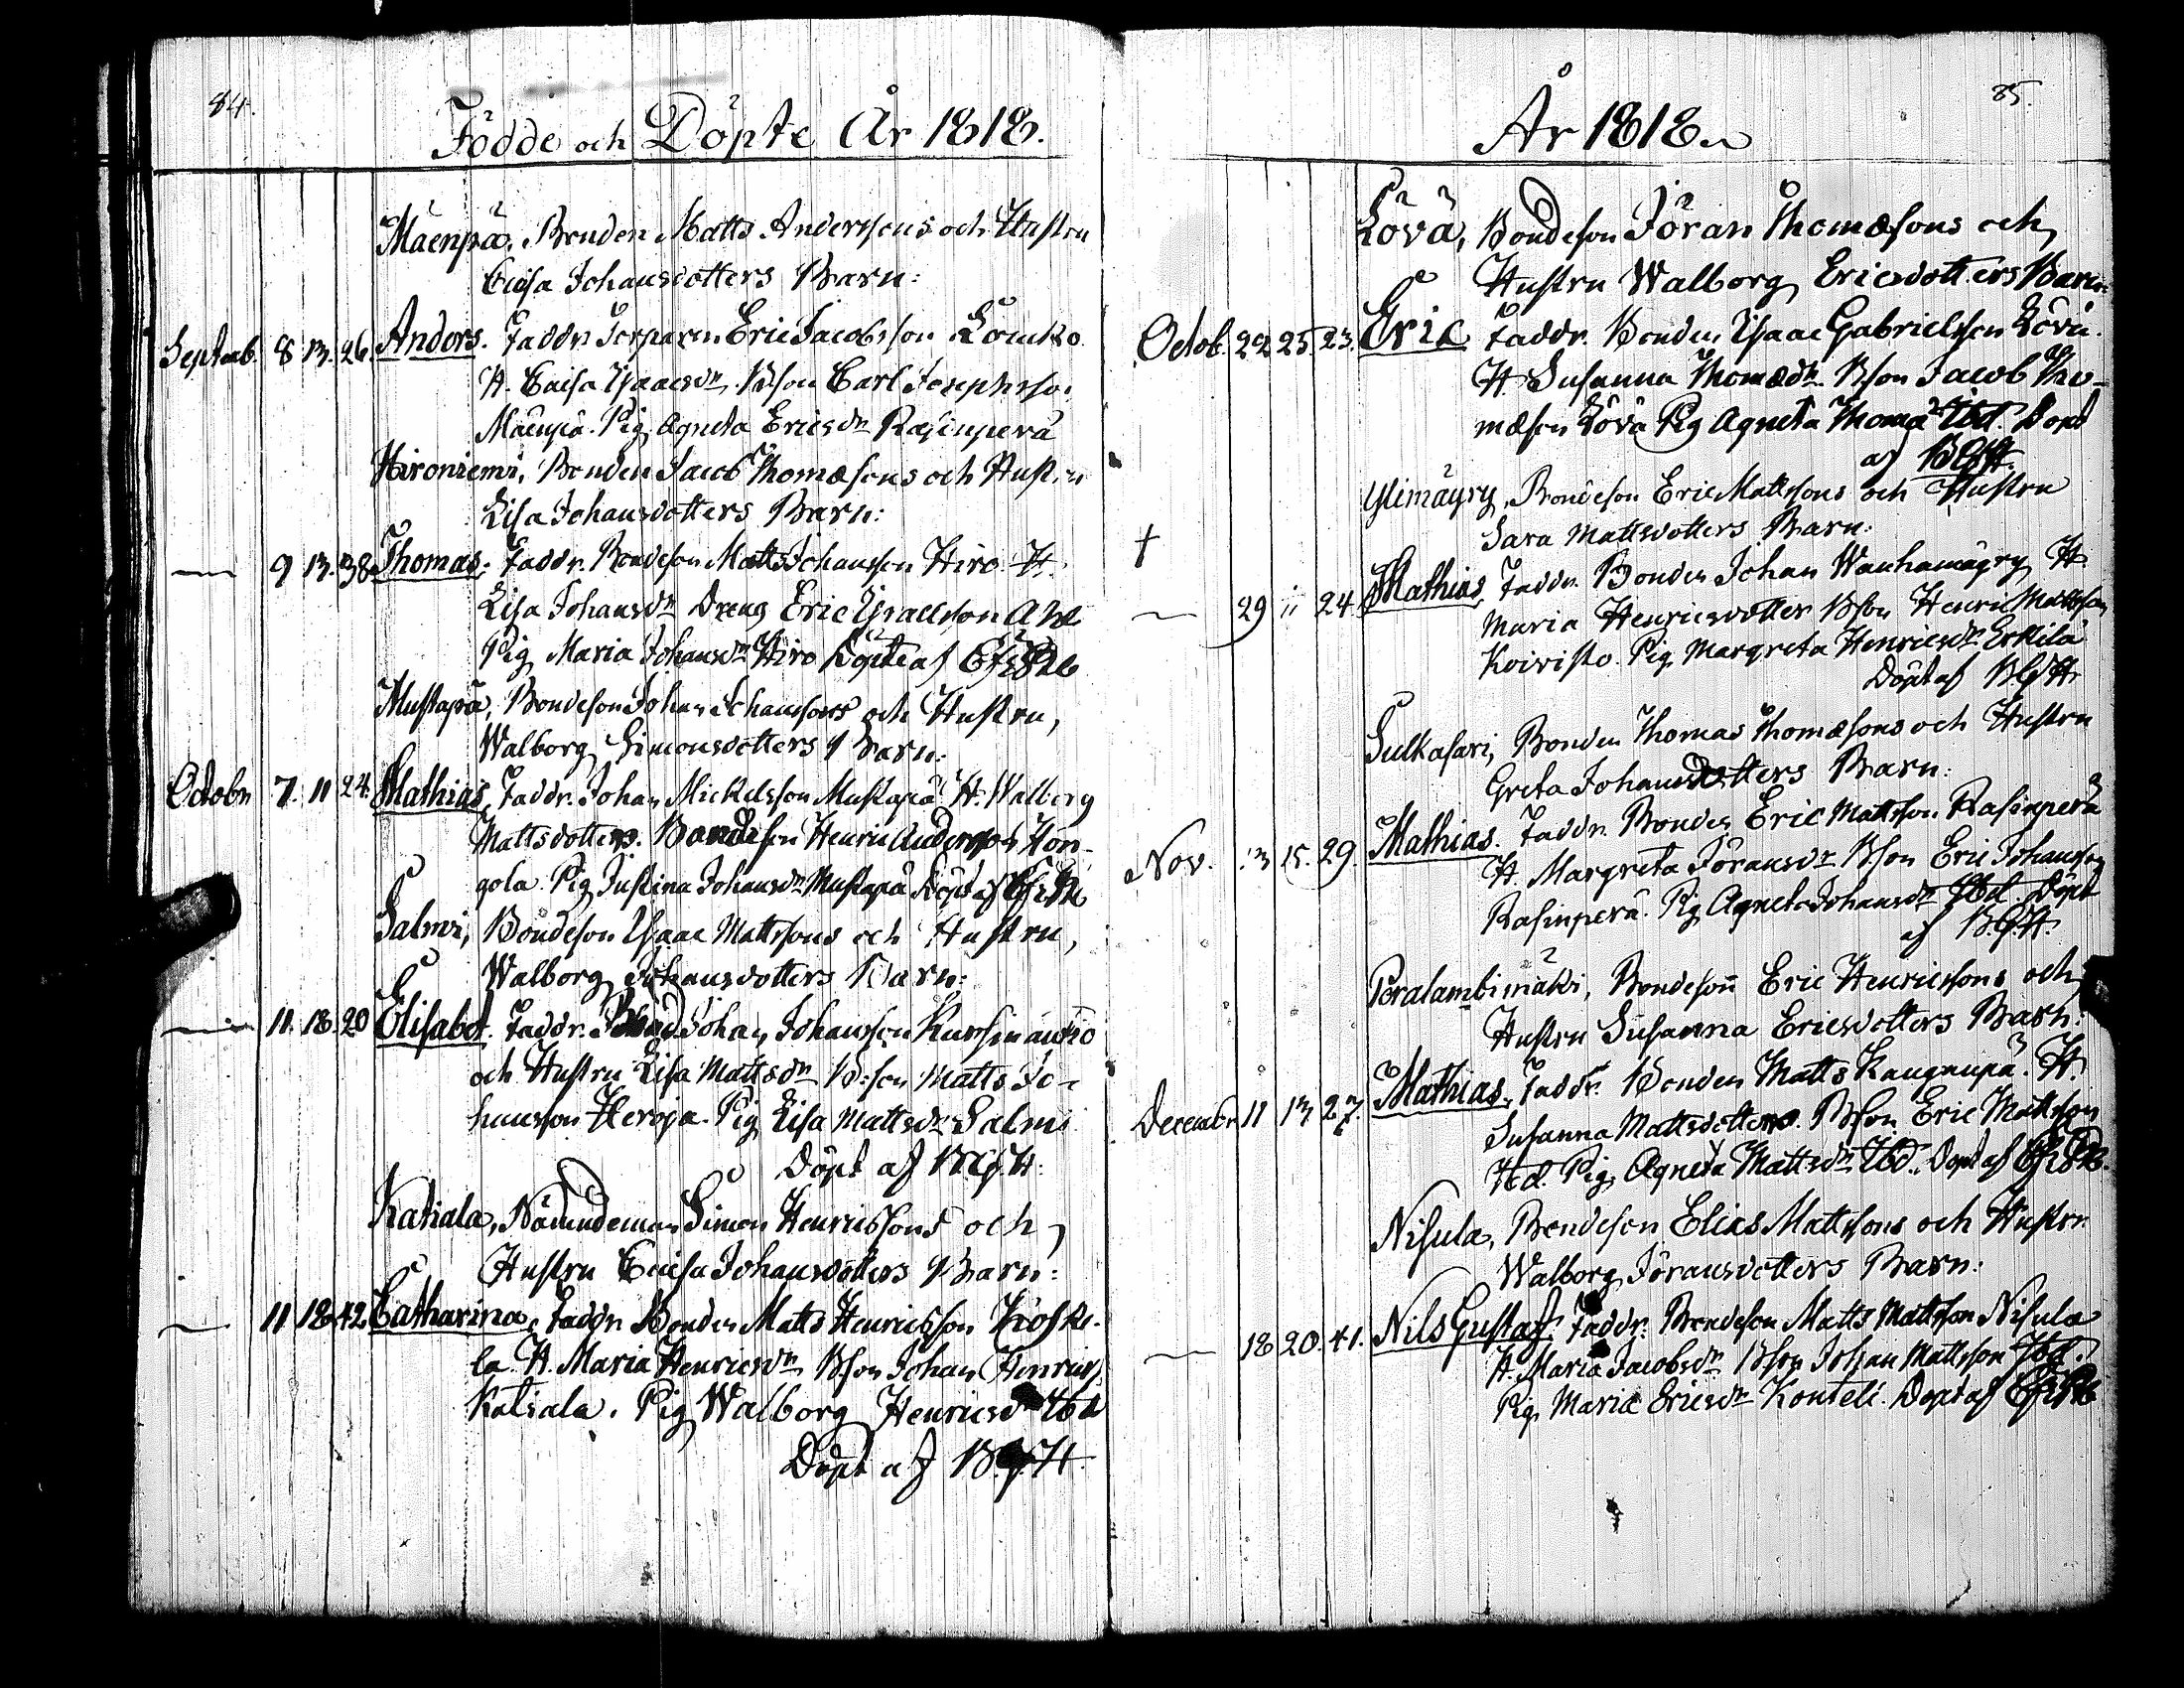 84.
Födde och Döpte År 1818.
Mäenpä, Bonden Matts Anderssons och Hustru
Caisa Johansdotters Barn:
Septemb. 8 13. 26 Anders. Faddr. Torparen Eric Jacobsson
H. Caisa Isaacsdr. Bson Carl Josephsson
Mäenpä. Pig. Agneta Ericsdr Rasinperä
Hironiemi, Bonden Jacob Thomæsons och Hustru
Lisa Johansdotters Barn:
— 9 13. 38 Thomas. Faddr. Bondeson Matts Johansson Hiro H.
Lisa Johansdr Dreng Eric Isacsson
Pig Maria Johansdr Hiro Döpte af
Mustapä, Bondeson Johan Johanssons och Hustru,
Walborg Simonsdotters Barn:
Octobr 7. 11 24. Mathias, Faddr. Johan Mickelsson Mustapä H. Walborg
Mattsdotters. Bondeson Henric Andersson Hon-
gola. Pig Justina Johansdr Mustapä Döpt af
Salmi, Bondeson Isaac Mattssons och Hustru,
Walborg Johansdotters Barn:
— 11. 18. 20 Elisabet. Faddr. Johan Johansson
och Hustru Lisa Mattsdr B:son Matts Jo-
hansson Heroja. Pig Lisa Mattsdr Salmi
Döpt af B.G.H.
Katiala, Nämndeman Simon Henricssons och
Hustru Caisa Johansdotters Barn:
— 11 18 42 Catharina, Faddr Bonden Matts Henricsson Koske-
la. H. Maria Henricsdr Bson Johan Henrics.
Katiala. Pig Walborg Henricsdr Ibd
Döpt af B.G.H.
85.
År 1818.
Lövä, Bondeson Jöran Thomæsons och
Hustru Walborg Ericsdotters Barn:
Octob. 22 25 23. Eric Faddr. Bonden Isaac Gabrielsson Lövä.
H. Susanna Thomædr. Bson Jacob Tho-
mæson Lövä Pig Agneta Thomædr Ibd. Döpt
af B.G.H.
Ylimäyry, Bondeson Eric Mattssons och Hustru
Sara Mattsdotters Barn:
†
— 29 11 24 Mathias, Faddr. Bonden Johan Wanhamäyry H.
Maria Henricsdotter Bson Henric Mattsson
Koivisto. Pig Margreta Henricsdr Erkilä
Döpt af B.G.H.
Sulkasari, Bonden Thomas Thomæsons och Hustru
Greta Johansdotters Barn:
Nov. 13 15. 29. Mathias. Faddr. Bonden Eric Mattsson Rasinperä
H. Margreta Jöransdr Bson Eric Johansson
Rasinperä. Pig Agneta Johansdr Ibd. Döpt
af B.G.H.
Peralambimäki, Bondeson Eric Henricssons och
Hustru Susanna Ericsdotters Barn:
Decembr 11 13 27. Mathias, Faddr. Bonden Matts Kangaspä. H.
Susanna Mattsdotters. Bson Eric Mattsson
Ibd. Pig Agneta Mattsdr Ibd. Döpt af
Nisula, Bondeson Elias Mattssons och Hustru
Walborg Jöransdotters Barn:
— 18 20. 41. Nils Gustaf. Faddr. Bondeson Matts Mattsson Nisula
H. Maria Jacobsdr Bson Johan Mattsson Ibd.
Pig. Maria Ericsdr Konteli. Döpt af